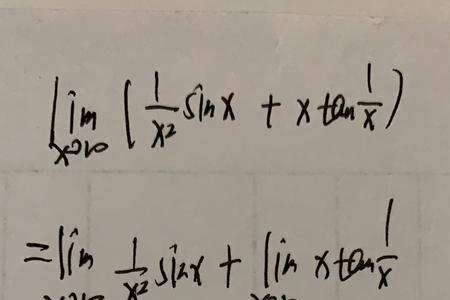 lim x→∞ (1/x² sin x + x tan 1/x)
= lim 1/x² sin x + lim x tan 1/x